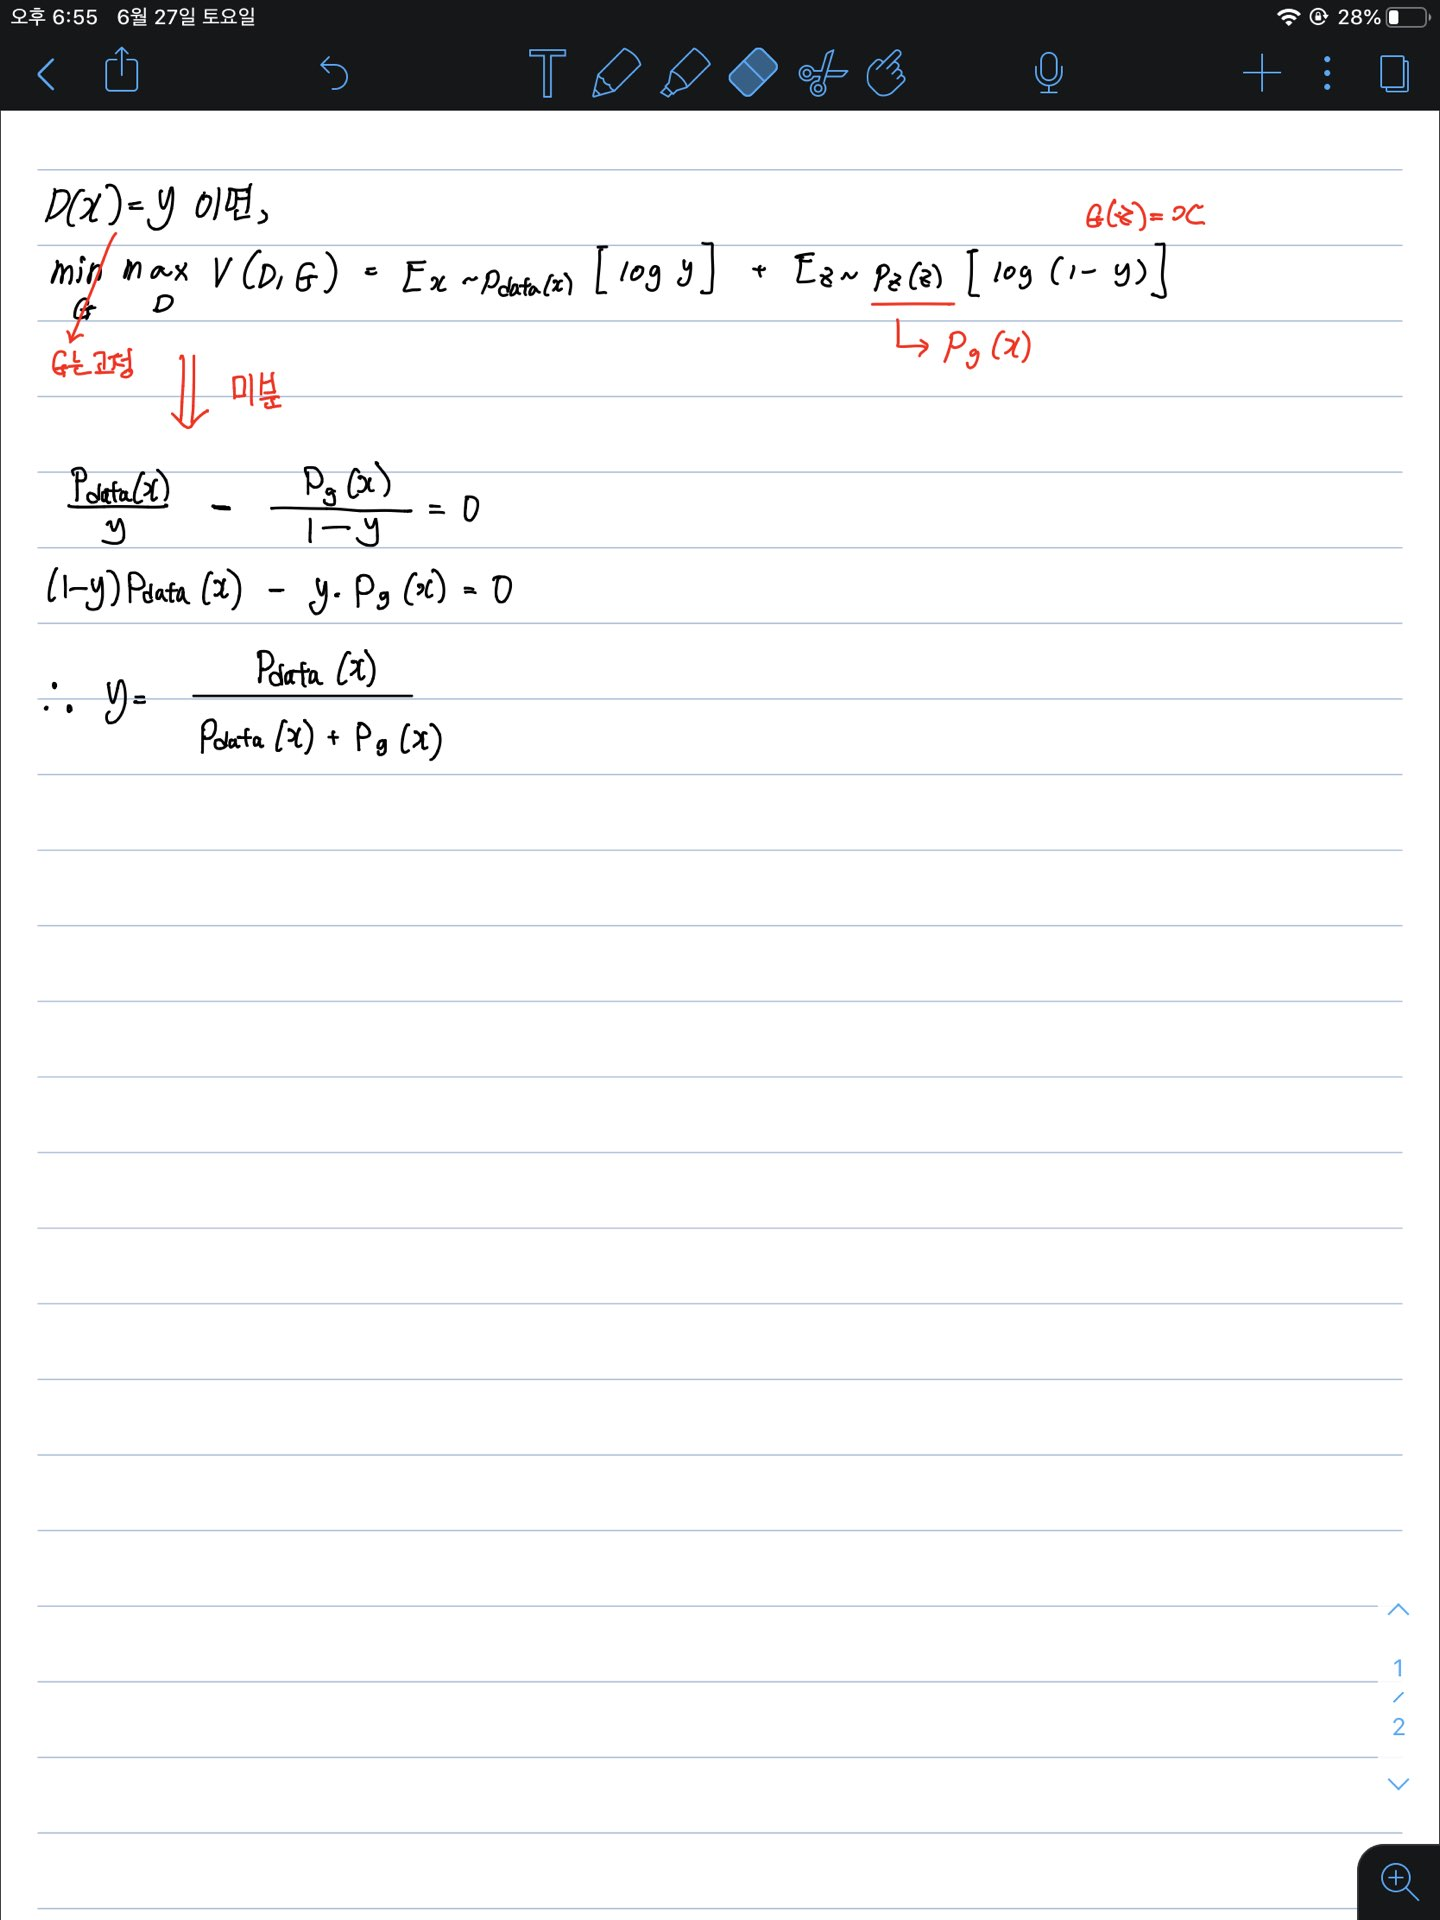 오후 6:55 6월 27일 토요일 28%
D(x)=y 이면,
G(z)=x
min max V(D,G) = E x~Pdata(x) [log y] + E z~Pz(z) [log (1-y)]
G D
↳ Pg(x)
G는 고정
⇓ 미분
Pdata(x)/y - Pg(x)/(1-y) = 0
(1-y)Pdata(x) - y·Pg(x) = 0
∴ y= Pdata(x)/(Pdata(x) + Pg(x))
1
/
2